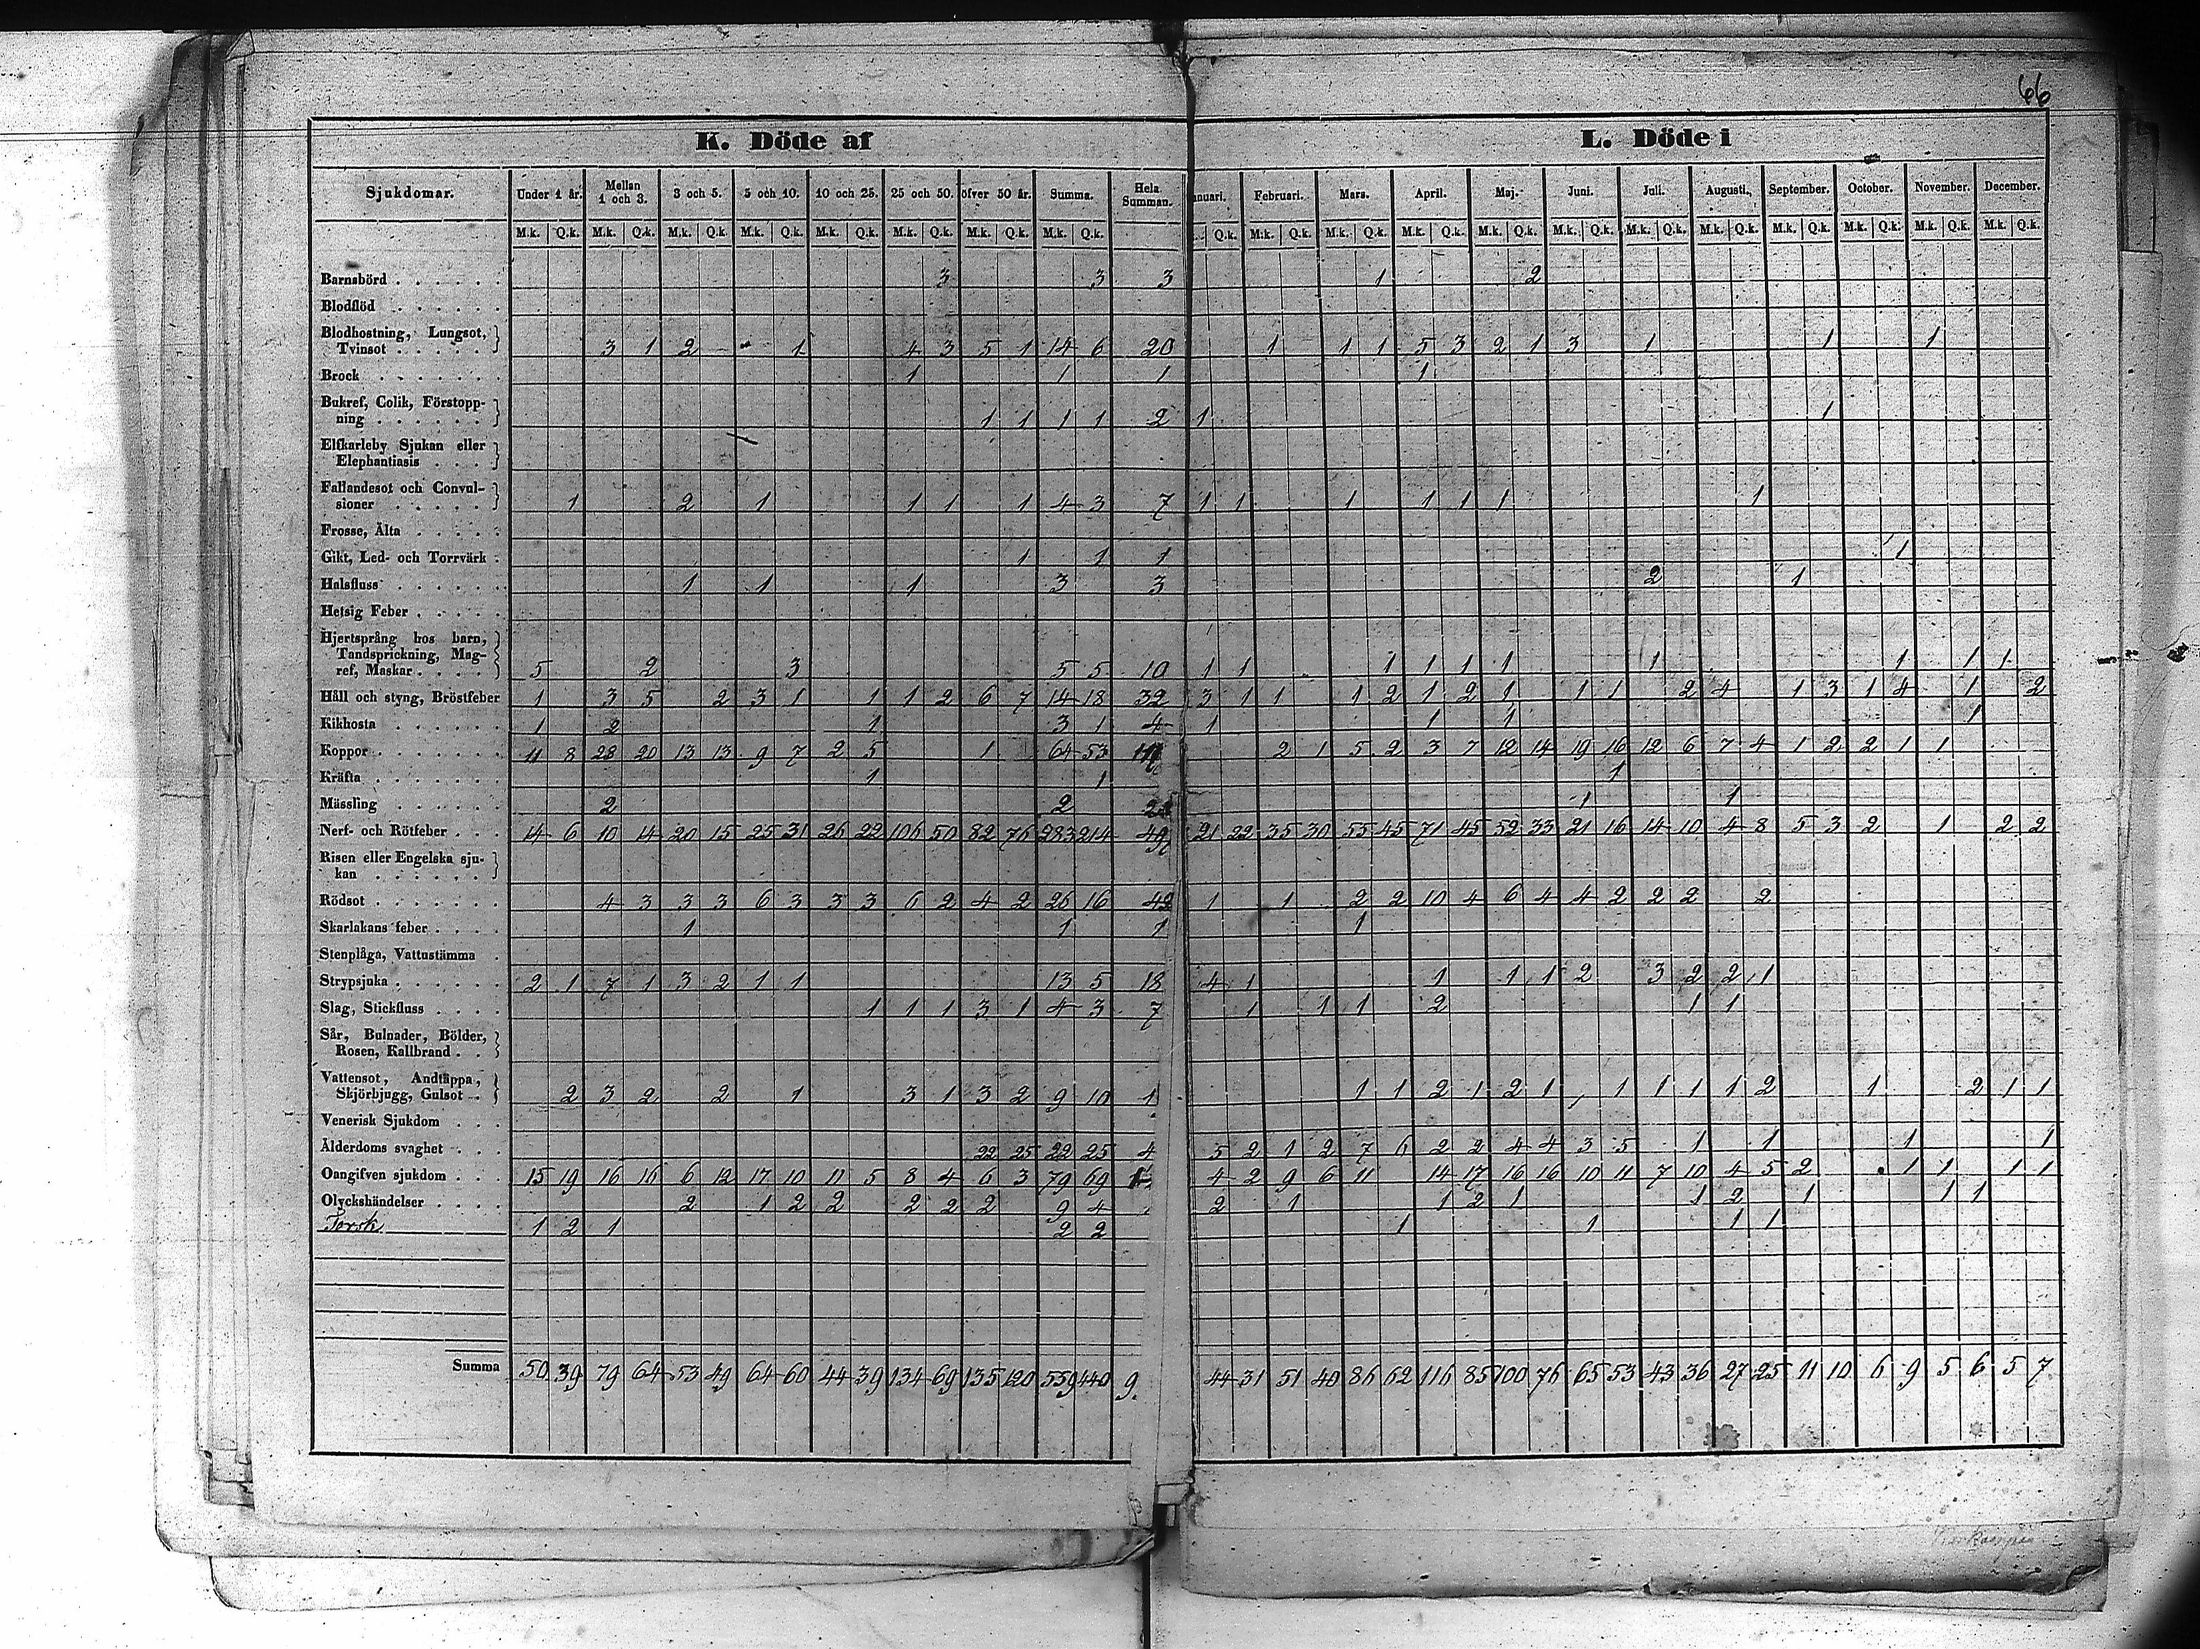 66
K. Döde af
L. Döde i
Sjukdomar. Under 1 år. Mellan 1 och 3. 3 och 5. 5 och 10. 10 och 25. 25 och 50. öfver 50 år. Summa. Hela Summan. anuari. Februari. Mars. April. Maj. Juni. Juli. Augusti. September. October. November. December.
M.k. Q.k. M.k. Q.k. M.k. Q.k. M.k. Q.k. M.k. Q.k. M.k. Q.k. M.k. Q.k. M.k. Q.k. Q.k. M.k. Q.k. M.k. Q.k. M.k. Q.k. M.k. Q.k. M.k. Q.k. M.k. Q.k. M.k. Q.k. M.k. Q.k. M.k. Q.k. M.k. Q.k. M.k. Q.k.
Barnsbörd 3 3 3 1 2
Blodflöd
Blodhostning, Lungsot,
Tvinsot 3 1 2 1 4 3 5 1 14 6 20 1 1 1 5 3 2 1 3 1 1 1
Brock 1 1 1 1
Bukref, Colik, Förstopp-
ning 1 1 1 1 2 1 1
Elfkarleby Sjukan eller
Elephantiasis
Fallandesot och Convul-
sioner 1 2 1 1 1 1 4 3 7 1 1 1 1 1 1 1
Frosse, Älta
Gikt, Led- och Torrvärk 1 1 1 1
Halsfluss 1 1 1 3 3 2 1
Hetsig Feber
Hjertsprång hos barn,
Tandsprickning, Mag-
ref, Maskar 5 2 3 5 5 10 1 1 1 1 1 1 1 1 1 1
Håll och styng, Bröstfeber 1 3 5 2 3 1 1 1 2 6 7 14 18 32 3 1 1 1 2 1 2 1 1 1 2 4 1 3 1 4 1 2
Kikhosta 1 2 1 3 1 4 1 1 1 1
Koppor 11 8 28 20 13 13 9 7 2 5 1 64 53 2 1 5 2 3 7 12 14 19 16 12 6 7 4 1 2 2 1 1
Kräfta 1 1 1
Mässling 2 2 2 1 1
Nerf- och Rötfeber 14 6 10 14 20 15 25 31 26 22 106 50 82 76 283 214 497 21 22 35 30 55 45 71 45 52 33 21 16 14 10 4 8 5 3 2 1 2 2
Risen eller Engelska sju-
kan
Rödsot 4 3 3 3 6 3 3 3 6 2 4 2 26 16 42 1 1 2 2 10 4 6 4 4 2 2 2 2
Skarlakans feber 1 1 1 1
Stenplåga, Vattustämma
Strypsjuka 2 1 7 1 3 2 1 1 13 5 18 4 1 1 1 1 2 3 2 2 1
Slag, Stickfluss 1 1 1 3 1 4 3 7 1 1 1 2 1 1
Sår, Bulnader, Bölder,
Rosen, Kallbrand
Vattensot, Andtäppa,
Skjörbjugg, Gulsot 2 3 2 2 1 3 1 3 2 9 10 1 1 1 2 1 2 1 1 1 1 1 2 1 2 1 1
Venerisk Sjukdom
Ålderdoms svaghet 22 25 22 25 4 5 2 1 2 7 6 2 2 4 4 3 5 1 1 1 1
Oangifven sjukdom 15 19 16 16 6 12 17 10 11 5 8 4 6 3 79 69 4 2 9 6 11 14 17 16 16 10 11 7 10 4 5 2 1 1 1 1
Olyckshändelser 2 1 2 2 2 2 2 9 4 2 1 1 2 1 1 2 1 1 1
Torsk 1 2 1 2 2 1 1 1 1
Summa 50 39 79 64 53 49 64 60 44 39 134 69 135 120 559 440 9 44 31 51 40 86 62 116 85 100 76 65 53 43 36 27 25 11 10 6 9 5 6 5 7